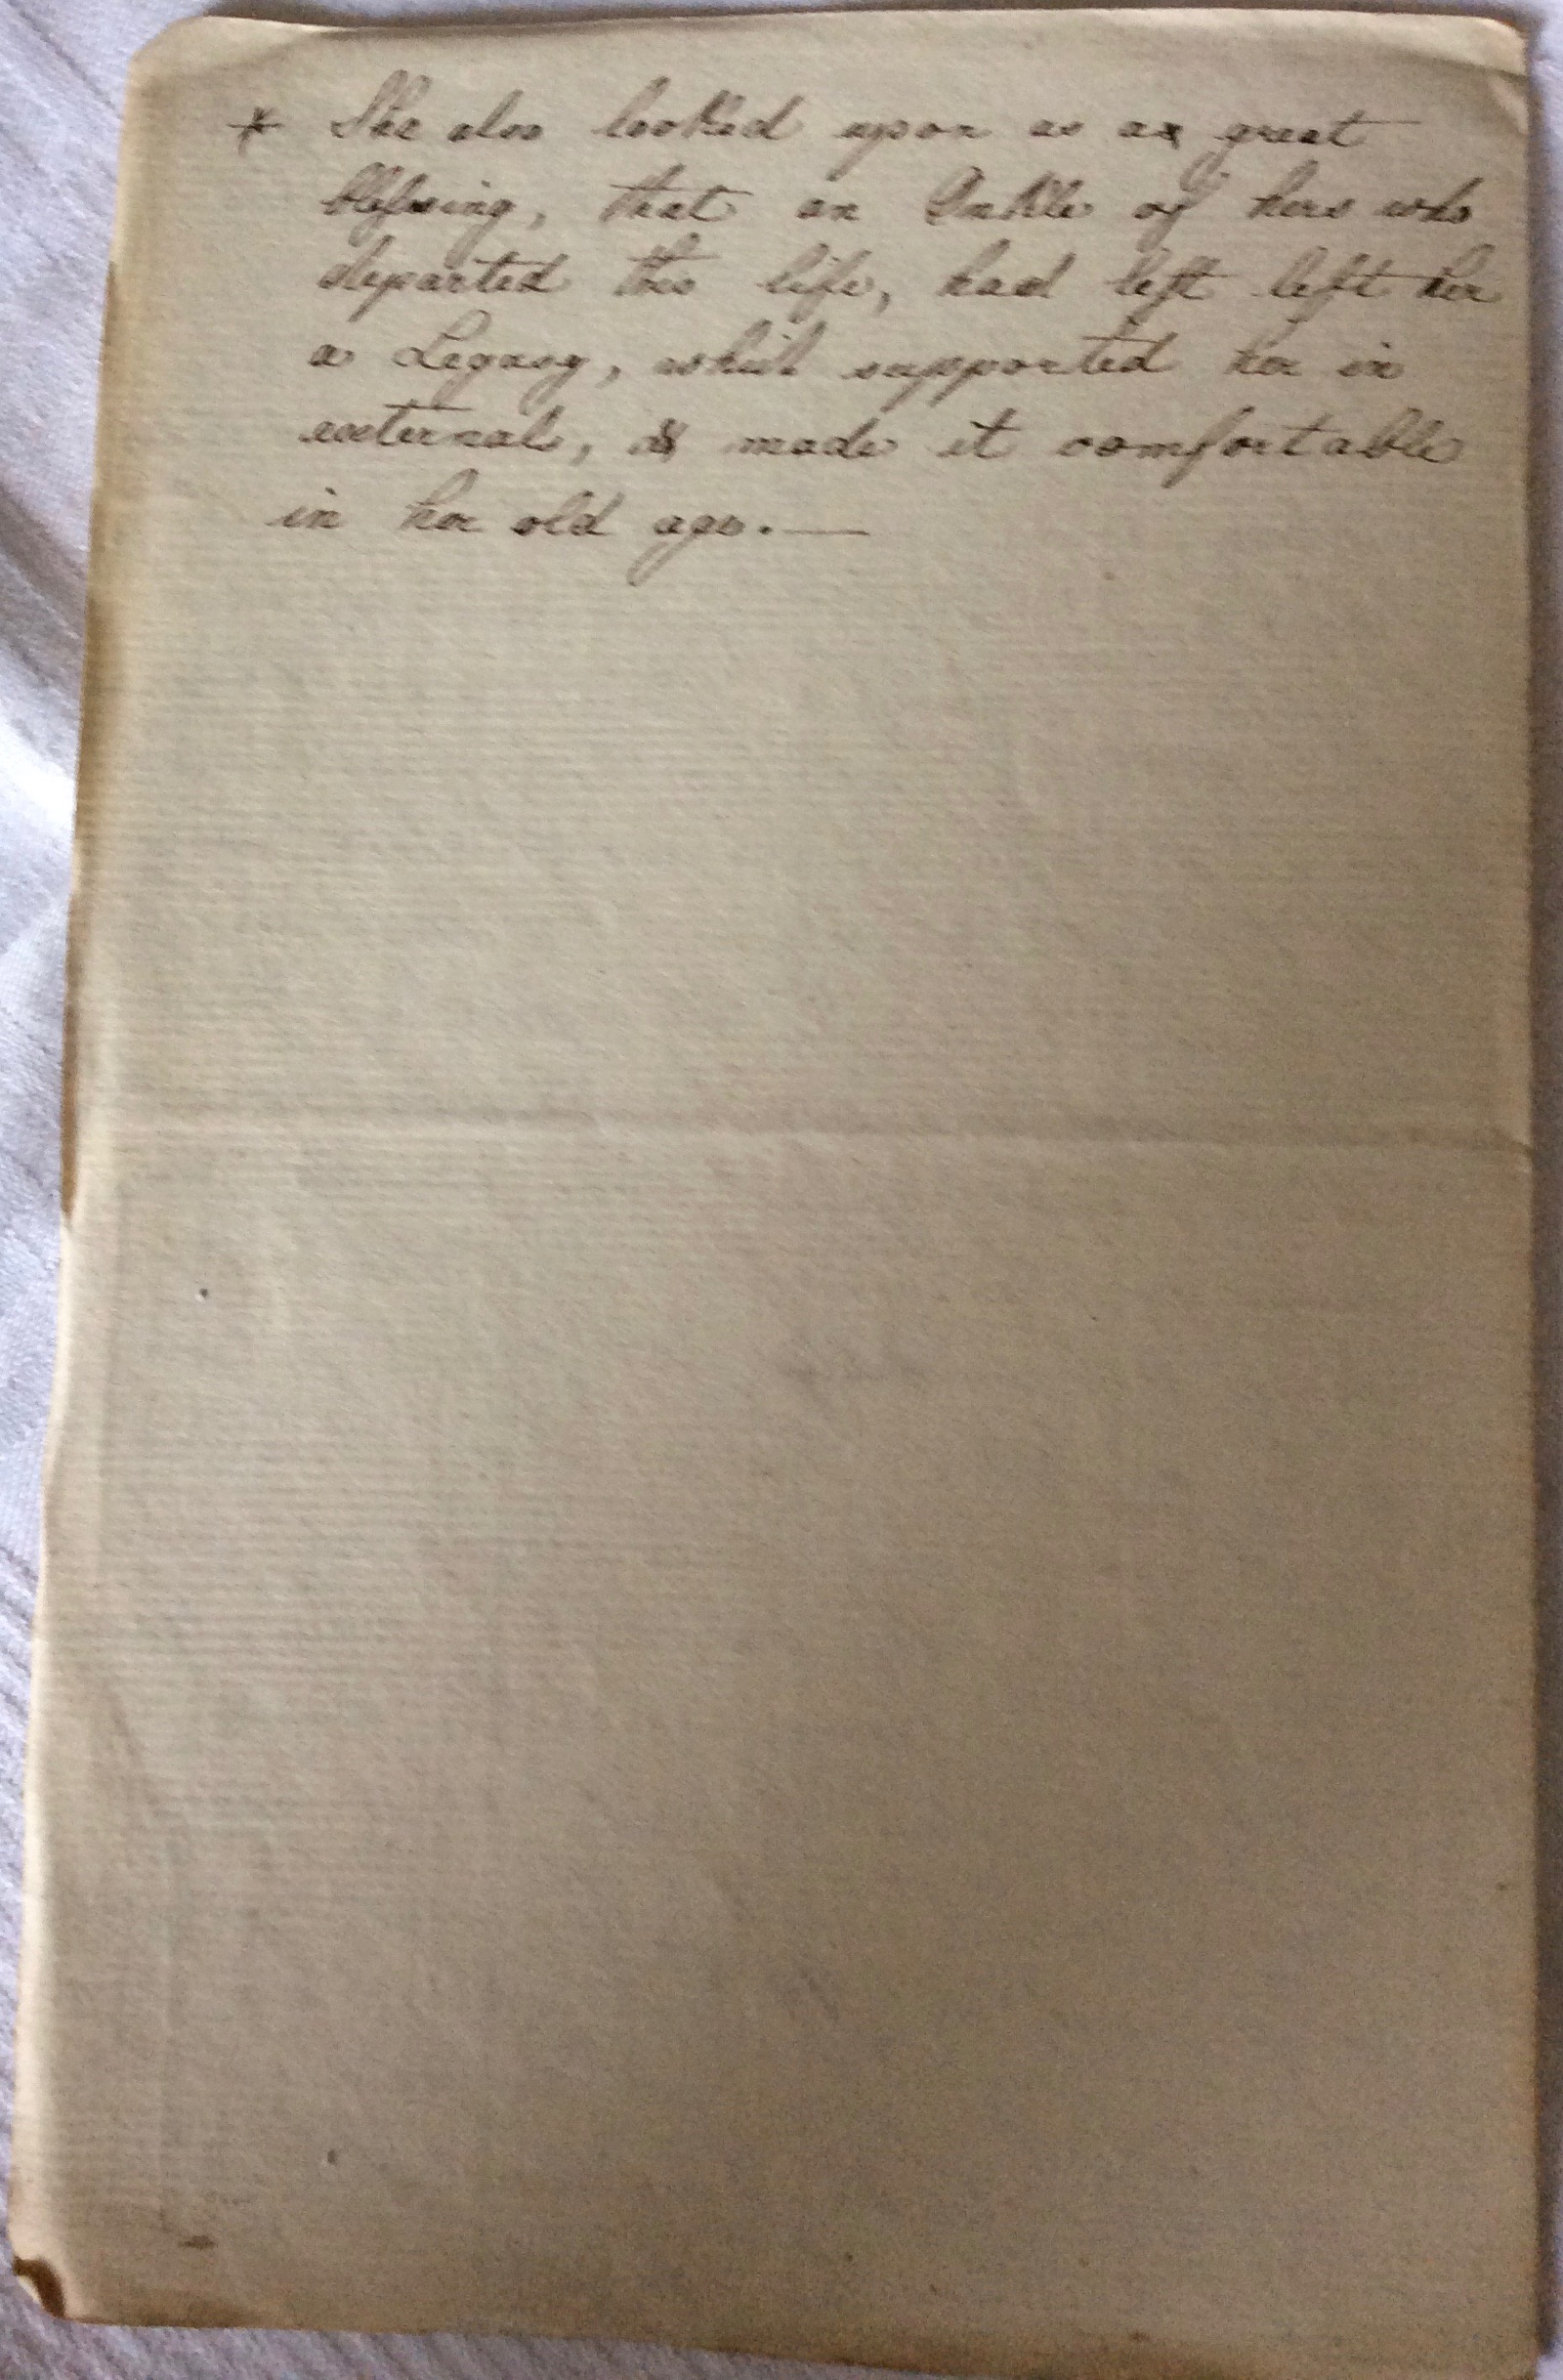 * She also looked upon as a great
blessing, that an Unkle of hers who
departed this life, had left left her
a Legacy, which supported her in
external, & made it comfortable
in her old age.—